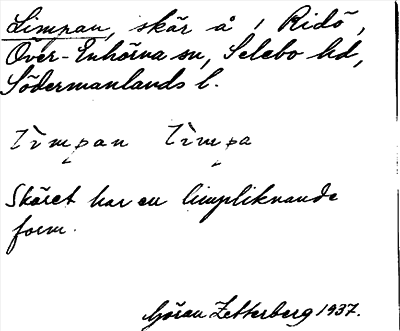 Limpan, skär å 1 Ridö,
Över-Enhörna sn, Selebo hd,
Södermanlands l.
lìmpan lìmpa
Skäret har en limpliknande
form.
Göran Zetterberg 1937.